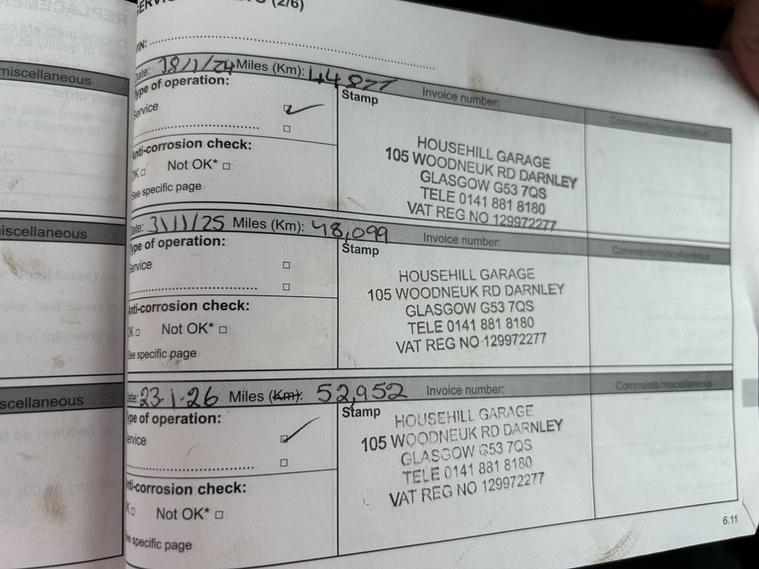 (2/6)
VIN:
miscellaneous
Date: 18/1/24 Miles (Km): 44877 Invoice number:
Comments/miscellaneous
Type of operation:
Service
Stamp
Anti-corrosion check:
OK Not OK*
See specific page
HOUSEHILL GARAGE
105 WOODNEUK RD DARNLEY
GLASGOW G53 7QS
TELE 0141 881 8180
VAT REG NO 129972277
iscellaneous
Date: 31/1/25 Miles (Km): 48,099 Invoice number:
Comments/miscellaneous
Type of operation:
Service
Stamp
Anti-corrosion check:
OK Not OK*
See specific page
HOUSEHILL GARAGE
105 WOODNEUK RD DARNLEY
GLASGOW G53 7QS
TELE 0141 881 8180
VAT REG NO 129972277
scellaneous
Date: 23.1.26 Miles (Km): 52,952 Invoice number:
Comments/miscellaneous
Type of operation:
Service
Stamp
Anti-corrosion check:
OK Not OK*
See specific page
HOUSEHILL GARAGE
105 WOODNEUK RD DARNLEY
GLASGOW G53 7QS
TELE 0141 881 8180
VAT REG NO 129972277
6.11